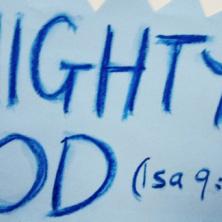 IGHTY
OD (Isa 9: